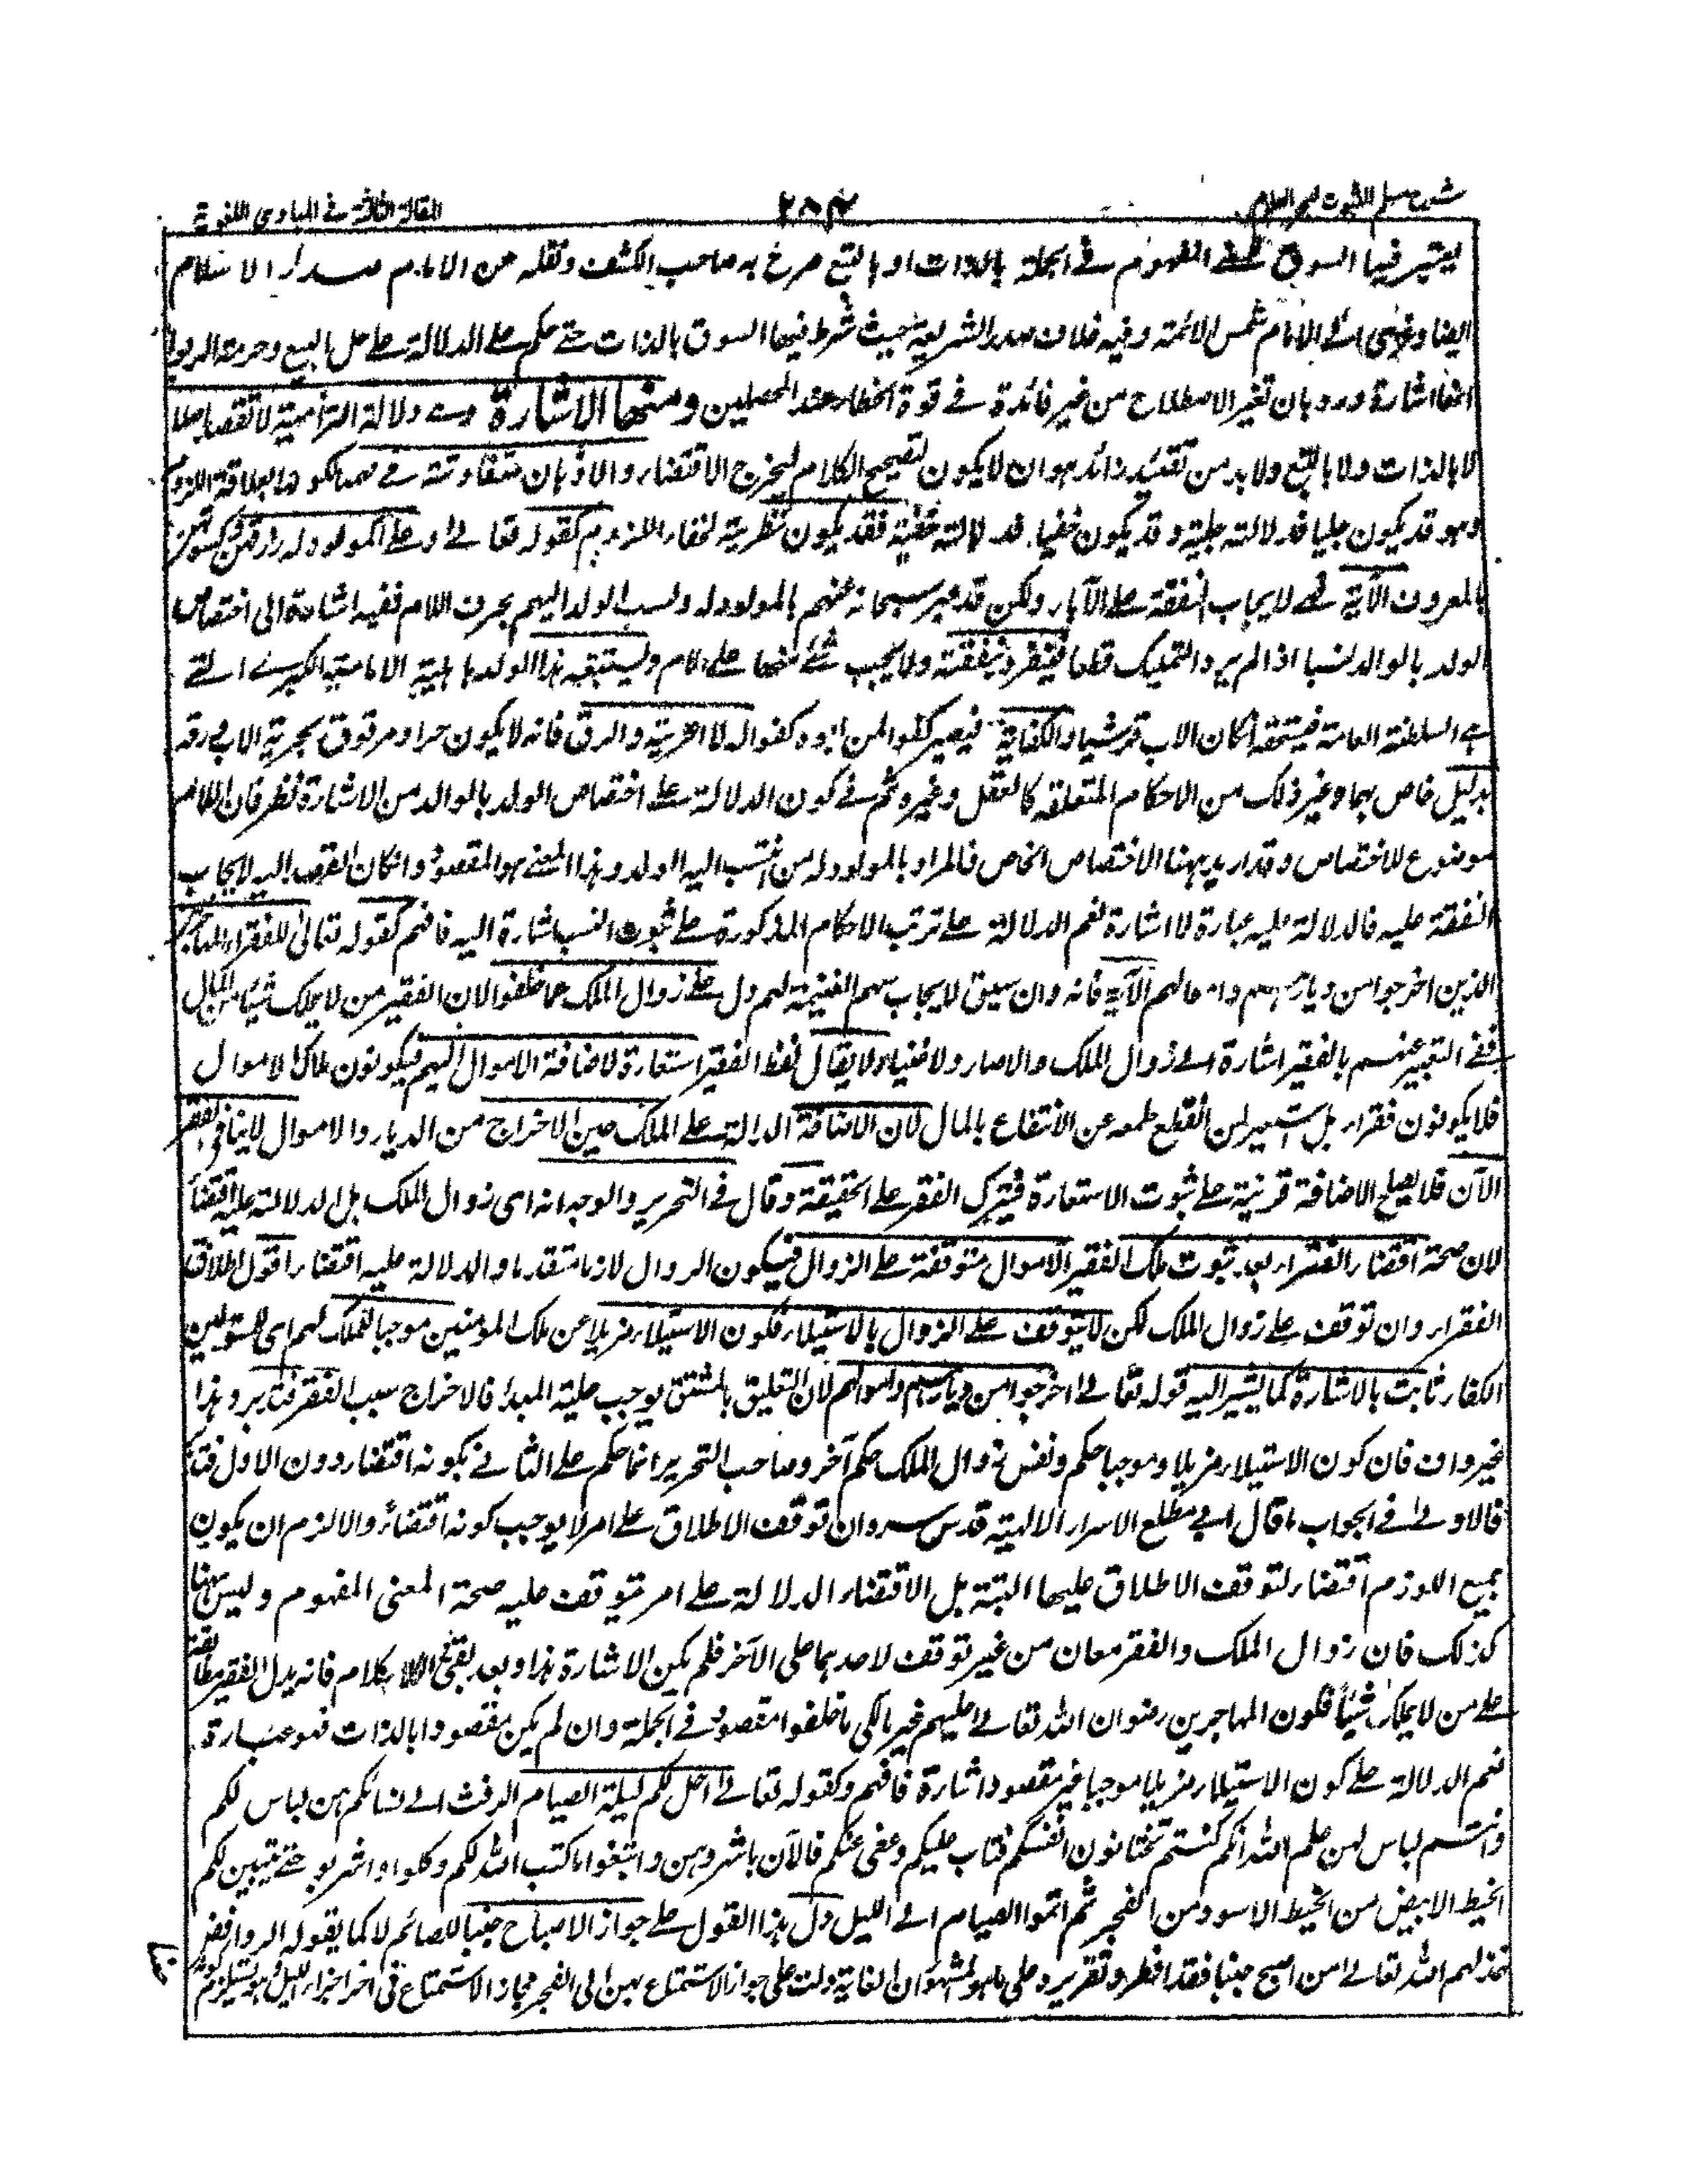 شرح مسلم الثبوت لبحر العلوم
٢٨٤
المقالة الثالثة في المبادى اللغوية
يعتبر فيها السوق للمفهوم في الجملة بالذات او بالتبع صرح به صاحب الكشف ونقله عن الامام صدر الاسلام
ايضا وعزى الى الامام شمس الائمة وفيه خلاف صدر الشريعة حيث شرط فيها السوق بالذات حتى حكم على الدلالة على حل البيع وحرمة الربوا
انها اشارة ورد بان تغير الاصطلاح من غير فائدة في قوة الخطاء عند المحصلين ومنها الاشارة وهى دلالة التزامية لا تقصد اصلا
لا بالذات ولا بالتبع ولا بد من تقييد زائد هو ان لا يكون لتصحيح الكلام ليخرج الاقتضاء والاذهان متفاوتة في فهمها لكونها بعلاقة اللزوم
وهو قد يكون جليا فدلالته جلية وقد يكون خفيا فدلالته خفية فقد يكون نظرية لخفاء اللزوم كقوله تعالى وعلى المولود له رزقهن وكسوتهن
بالمعروف الآية فهى لايجاب النفقة على الآباء ولكن قد عبر سبحانه عنهم بالمولود له ونسب الولد اليهم بحرف اللام ففيه اشارة الى اختصاص
الولد بالوالد نسبا اذا لم يرد التمليك قطعا فينفرد بنفقته ولا يجب شئ منها على الام ويستتبعه هذا الولد باهلية الامامة الكبرى التى
هى السلطنة العامة فيستحقه ان كان الاب قرشيا والكفاية فيصير كفوا لمن ابوه كفوا له لا الحرية والرق فانه لا يكون حرا ومرقوق بحرية الاب ورقه
بدليل خاص بهما وغير ذلك من الاحكام المتعلقة كالعقل وغيره ثم في كون الدلالة على اختصاص الولد بالوالد من الاشارة نظر فان اللام
موضوع للاختصاص وقد اريد ههنا الاختصاص الخاص فالمراد بالمولود له من ينتسب اليه الولد وهذا المعنى هو المقصود وان كان القصد اليه لايجاب
النفقة عليه فالدلالة عليه عبارة لا اشارة نعم الدلالة على ترتب الاحكام المذكورة على ثبوت النسب اشارة اليه فافهم كقوله تعالى للفقراء المهاجرين
الذين اخرجوا من ديارهم واموالهم الآية فانه وان سيق لايجاب سهم الغنيمة لهم دل على زوال الملك عما خلفوا لان الفقير من لا يملك شيئا من المال
ففى التعبير عنهم بالفقير اشارة الى زوال الملك والا صاروا اغنياء ولا يقال لفظ الفقير استعارة لاضافة الاموال اليهم فيكونون ملاك الاموال
فلا يكونون فقراء بل استعير لمن انقطع طمعه عن الانتفاع بالمال لان الاضافة الدالة على الملك حين الاخراج من الديار والاموال لا ينافى الفقر
الآن فلا يصلح الاضافة قرينة على ثبوت الاستعارة فيترك الفقر على الحقيقة وقال في التحرير والوجه انه اى زوال الملك بل الدلالة عليه اقتضاء
لان صحة اقتضاء الفقراء بعد ثبوت ملك الفقير الاموال متوقفة على الزوال فيكون الزوال لازما متقدما والدلالة عليه اقتضاء اقول اطلاق
الفقراء وان توقف على زوال الملك لكن لا يتوقف على الزوال بالاستيلاء فكون الاستيلاء مزيلا عن ملك المؤمنين موجبا للملك لهم اى للمستولين
الكفار ثابت بالاشارة كما يشير اليه قوله تعالى اخرجوا من ديارهم واموالهم لان التعليق بالمشتق يوجب علية المبدأ فالاخراج سبب الفقر فتدبر وهذا
غير واف فان كون الاستيلاء مزيلا وموجبا حكم ونفس زوال الملك حكم آخر وصاحب التحرير انما حكم على الثانى بكونه اقتضاء دون الاول فتأمل
فالاولى في الجواب ما قال ابى مطلع الاسرار الالهية قدس سره ان توقف الاطلاق على امر لا يوجب كونه اقتضاء والا لزم ان يكون
جميع اللوازم اقتضاء لتوقف الاطلاق عليها البتة بل الاقتضاء الدلالة على امر يتوقف عليه صحة المعنى المفهوم وليس ههنا
كذلك فان زوال الملك والفقر معان من غير توقف لاحدهما على الآخر فلم يكن الا اشارة هذا وبعد بقى الكلام فانه يدل الفقير مطابقة
على من لا يملك شيئا فكون المهاجرين رضوان الله تعالى عليهم غير مالكى ما خلفوا مقصود في الجملة وان لم يكن مقصودا بالذات فهو عبارة
نعم الدلالة على كون الاستيلاء مزيلا موجبا غير مقصود اشارة فافهم وكقوله تعالى احل لكم ليلة الصيام الرفث الى نسائكم هن لباس لكم
وانتم لباس لهن علم الله انكم كنتم تختانون انفسكم فتاب عليكم وعفى عنكم فالآن باشروهن وابتغوا ما كتب الله لكم وكلوا واشربوا حتى يتبين لكم
الخيط الابيض من الخيط الاسود من الفجر ثم اتموا الصيام الى الليل دل هذا القول على جواز الاصباح جنبا للصائم لا كما يقوله الروافض
خذلهم الله تعالى من اصبح جنبا فقد افطر وتقريره على ما هو المشهور ان الغاية دلت على جواز الاستمتاع بهن الى الفجر فجاز الاستمتاع فى اخر اجزاء الليل وهو يستلزم كونه